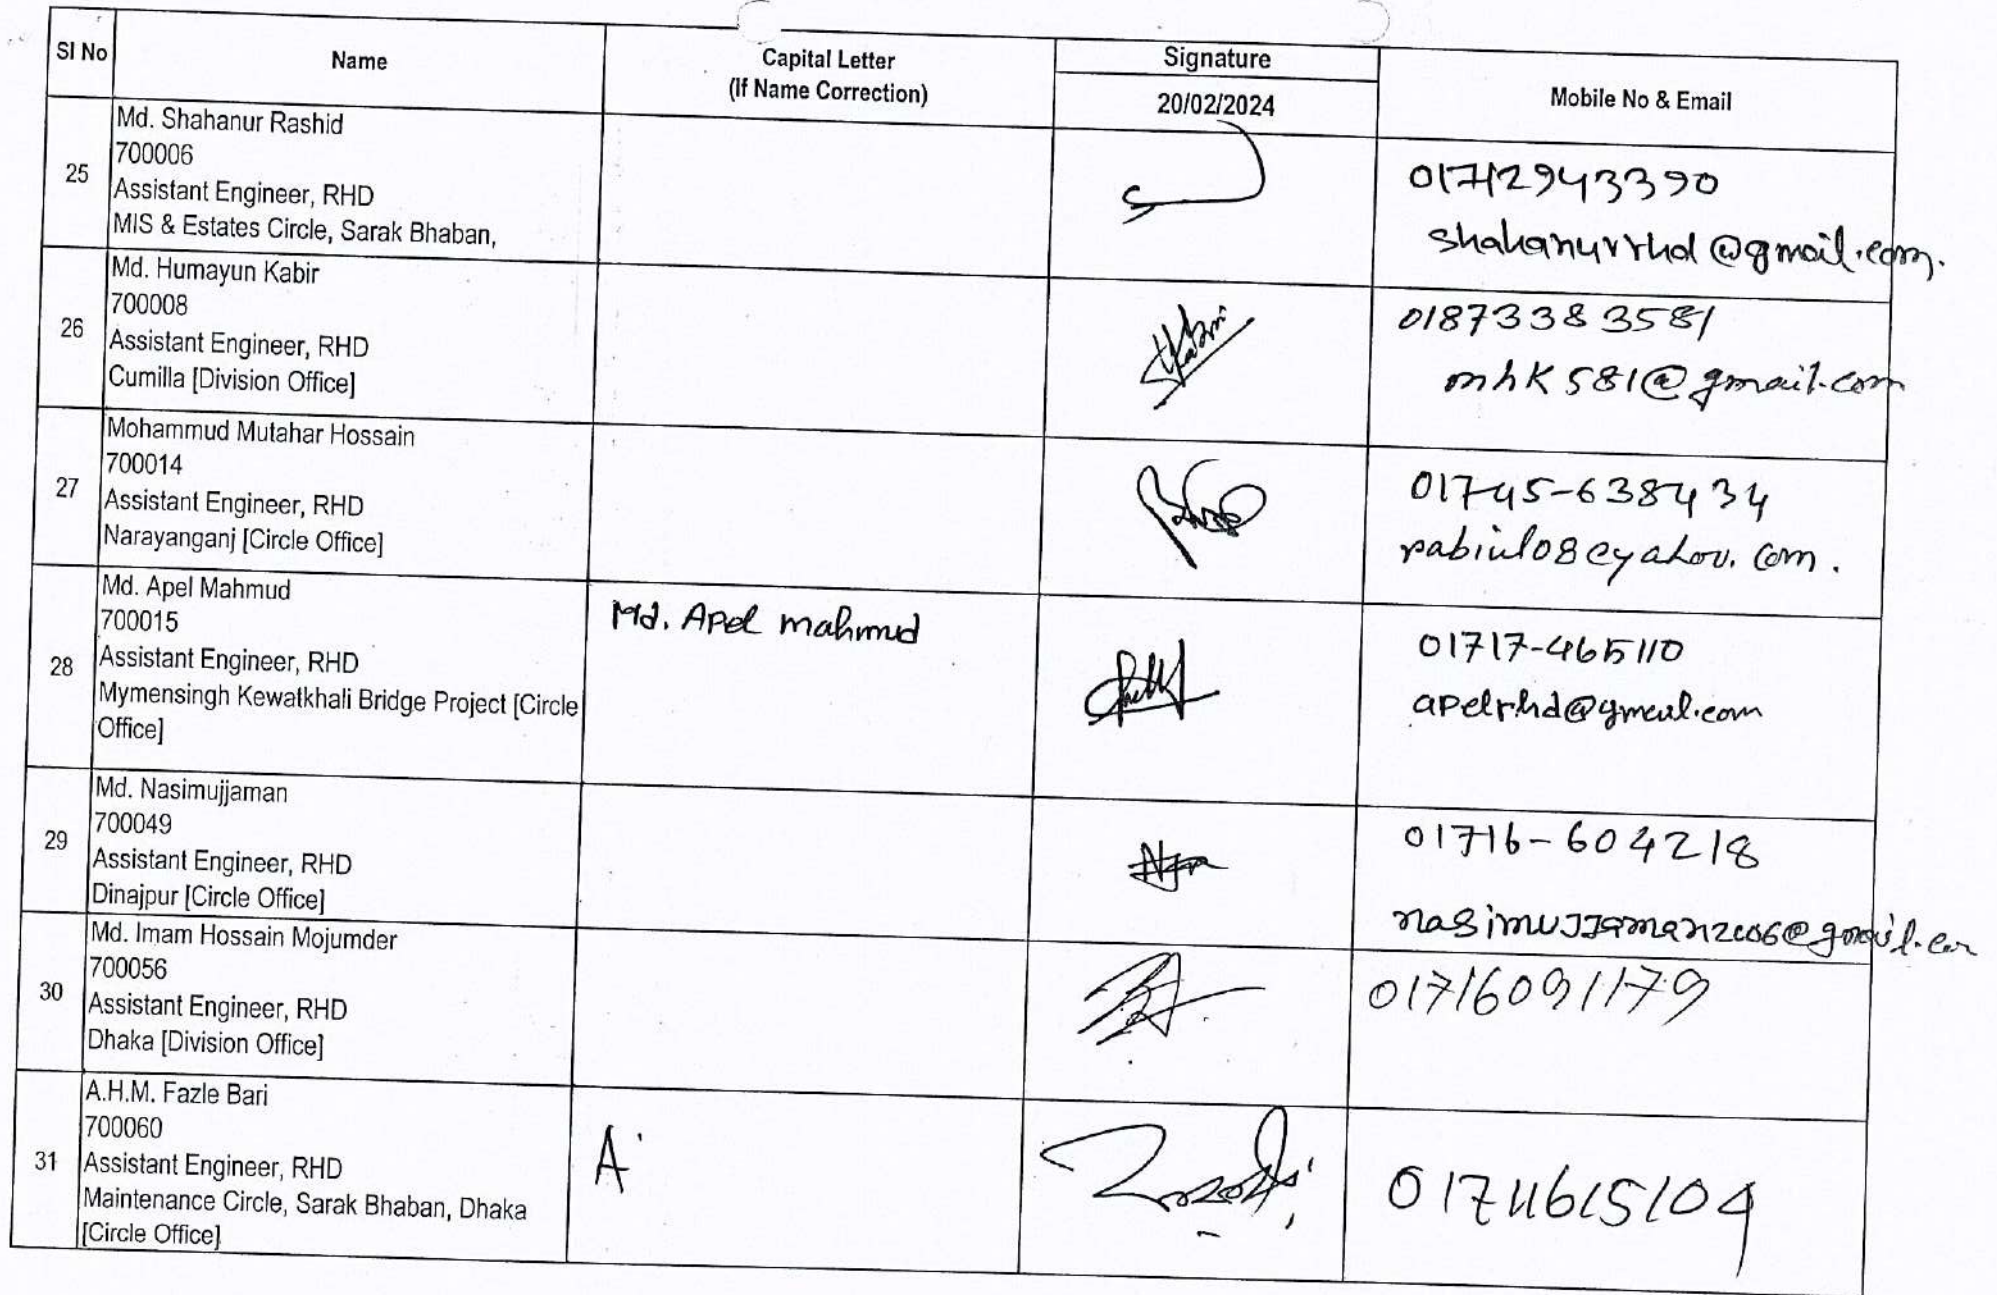 Sl No
Name
Capital Letter
(If Name Correction)
Signature
20/02/2024
Mobile No & Email
25
Md. Shahanur Rashid
700006
Assistant Engineer, RHD
MIS & Estates Circle, Sarak Bhaban,
01712943390
shahanurrhd@gmail.com.
26
Md. Humayun Kabir
700008
Assistant Engineer, RHD
Cumilla [Division Office]
01873383581
mhk581@gmail.com
27
Mohammud Mutahar Hossain
700014
Assistant Engineer, RHD
Narayanganj [Circle Office]
01745-638434
rabiul08@yahoo.com.
28
Md. Apel Mahmud
700015
Assistant Engineer, RHD
Mymensingh Kewatkhali Bridge Project [Circle
Office]
Md. Apel mahmud
01717-465110
apelrhd@gmail.com
29
Md. Nasimujjaman
700049
Assistant Engineer, RHD
Dinajpur [Circle Office]
01716-604218
nasimujjaman2006@gmail.com
30
Md. Imam Hossain Mojumder
700056
Assistant Engineer, RHD
Dhaka [Division Office]
01716091179
31
A.H.M. Fazle Bari
700060
Assistant Engineer, RHD
Maintenance Circle, Sarak Bhaban, Dhaka
[Circle Office]
A